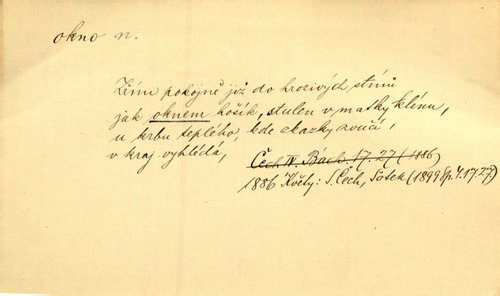 okno n.
Zírám pokojně již do hrozivých stínů
jak oknem hošík, stulen v matky klínu,
u krbu teplého, kde skazky zvučí,
v kraj vyhlédá,
Čech IV. Bách. 17. 27 (1886)
1886 Květy: S. Čech, Sotek (1899 Sp. I. 17. 27)